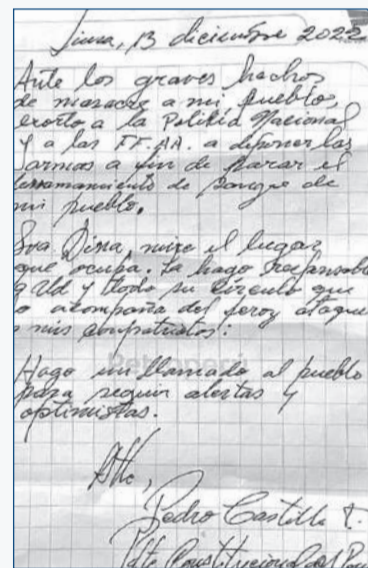 Lima, 13 diciembre 2022
Ante los graves hechos
de masacre a mi pueblo,
exorto a la Policía Nacional
y a las FF.AA. a diponer las
armas a fin de parar el
derramamiento de sangre de
mi pueblo.
Sra. Dina, mire el lugar
que ocupa. La hago responsable
a Ud y todo su círculo que
lo acompaña del feroz ataque
a mis compatriotas:
Hago un llamado al pueblo
para seguir alertas y
optimistas.
Atte,
Pedro Castillo T.
Pdte Constitucional del Perú